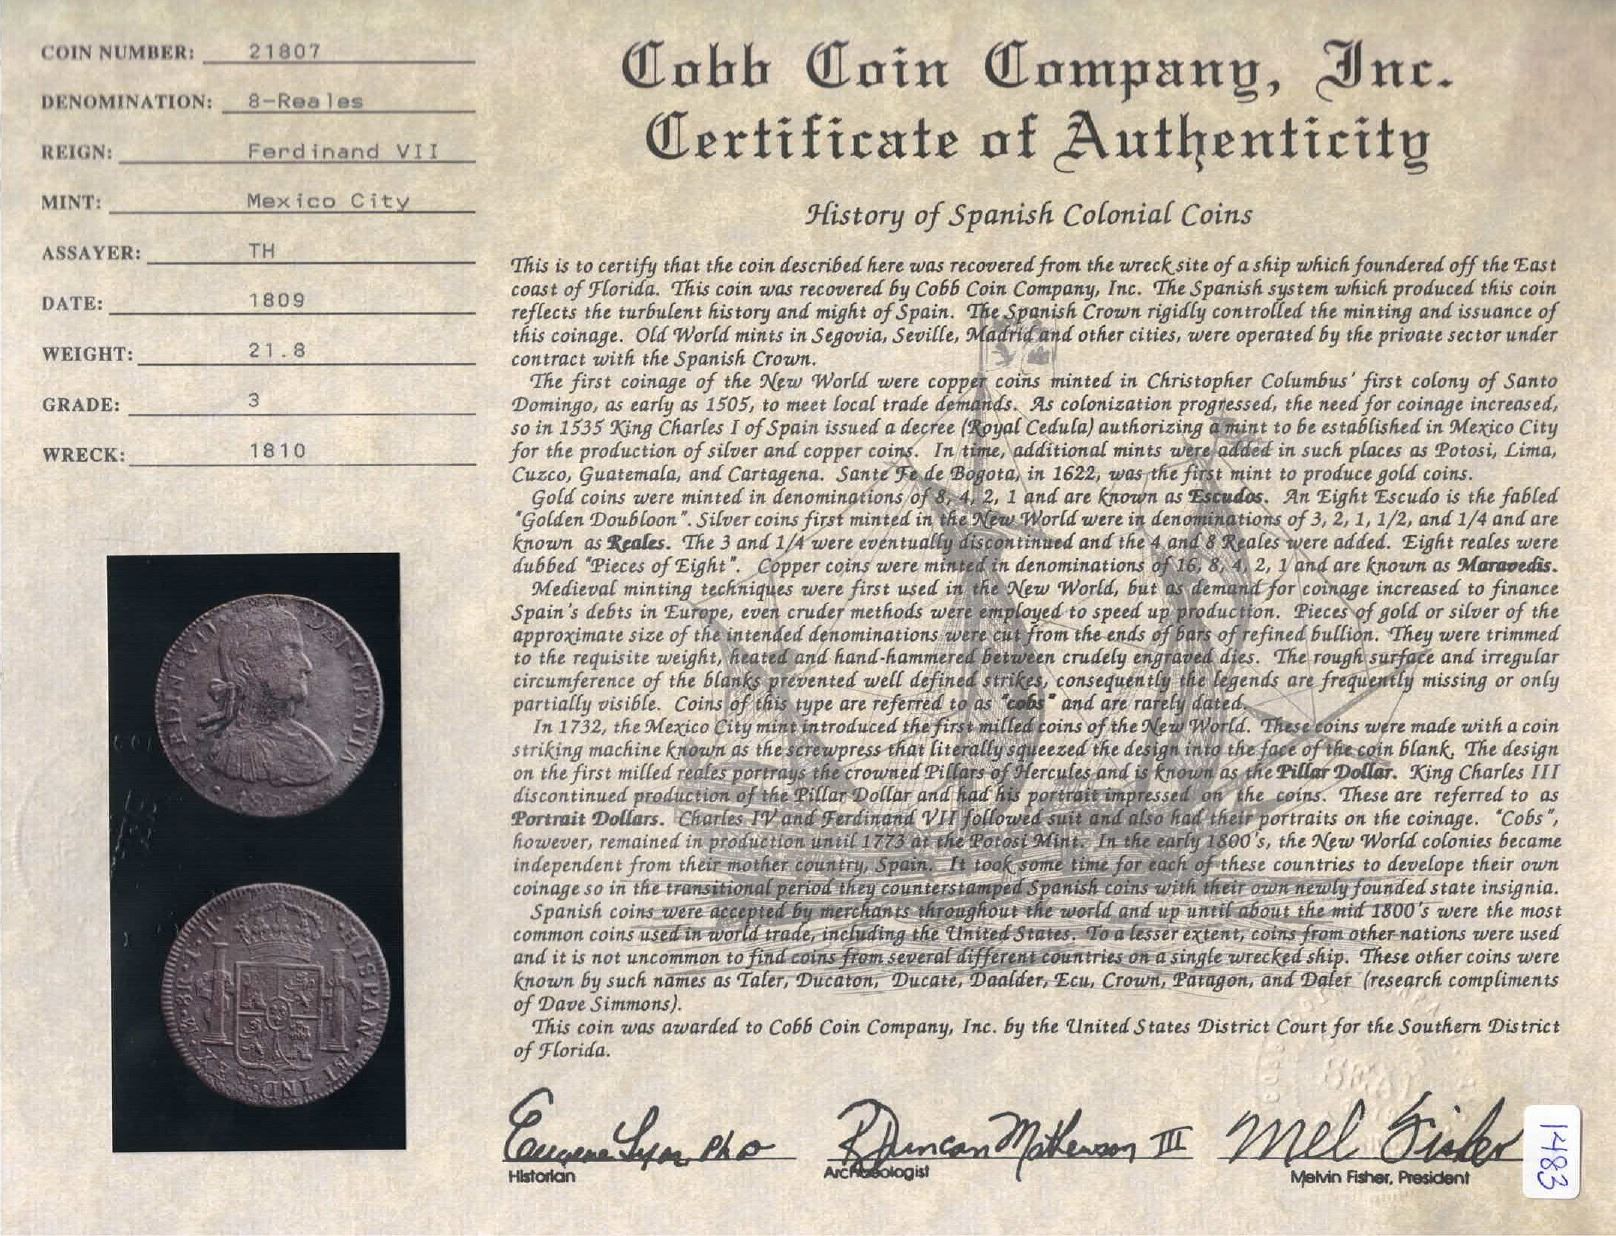 COIN NUMBER: 21807
DENOMINATION: 8-Reales
REIGN: Ferdinand VII
MINT: Mexico City
ASSAYER: TH
DATE: 1809
WEIGHT: 21.8
GRADE: 3
WRECK: 1810
Cobb Coin Company, Inc.
Certificate of Authenticity
History of Spanish Colonial Coins
This is to certify that the coin described here was recovered from the wreck site of a ship which foundered off the East
coast of Florida. This coin was recovered by Cobb Coin Company, Inc. The Spanish system which produced this coin
reflects the turbulent history and might of Spain. The Spanish Crown rigidly controlled the minting and issuance of
this coinage. Old World mints in Segovia, Seville, Madrid and other cities, were operated by the private sector under
contract with the Spanish Crown.
The first coinage of the New World were copper coins minted in Christopher Columbus' first colony of Santo
Domingo, as early as 1505, to meet local trade demands. As colonization progressed, the need for coinage increased,
so in 1535 King Charles I of Spain issued a decree (Royal Cedula) authorizing a mint to be established in Mexico City
for the production of silver and copper coins. In time, additional mints were added in such places as Potosi, Lima,
Cuzco, Guatemala, and Cartagena. Sante Fe de Bogota, in 1622, was the first mint to produce gold coins.
Gold coins were minted in denominations of 8, 4, 2, 1 and are known as Escudos. An Eight Escudo is the fabled
"Golden Doubloon". Silver coins first minted in the New World were in denominations of 3, 2, 1, 1/2, and 1/4 and are
known as Reales. The 3 and 1/4 were eventually discontinued and the 4 and 8 Reales were added. Eight reales were
dubbed "Pieces of Eight". Copper coins were minted in denominations of 16, 8, 4, 2, 1 and are known as Maravedis.
Medieval minting techniques were first used in the New World, but as demand for coinage increased to finance
Spain's debts in Europe, even cruder methods were employed to speed up production. Pieces of gold or silver of the
approximate size of the intended denominations were cut from the ends of bars of refined bullion. They were trimmed
to the requisite weight, heated and hand-hammered between crudely engraved dies. The rough surface and irregular
circumference of the blanks prevented well defined strikes, consequently the legends are frequently missing or only
partially visible. Coins of this type are referred to as "cobs" and are rarely dated.
In 1732, the Mexico City mint introduced the first milled coins of the New World. These coins were made with a coin
striking machine known as the screwpress that literally squeezed the design into the face of the coin blank. The design
on the first milled reales portrays the crowned Pillars of Hercules and is known as the Pillar Dollar. King Charles III
discontinued production of the Pillar Dollar and had his portrait impressed on the coins. These are referred to as
Portrait Dollars. Charles IV and Ferdinand VII followed suit and also had their portraits on the coinage. "Cobs",
however, remained in production until 1773 at the Potosi Mint. In the early 1800's, the New World colonies became
independent from their mother country, Spain. It took some time for each of these countries to develope their own
coinage so in the transitional period they counterstamped Spanish coins with their own newly founded state insignia.
Spanish coins were accepted by merchants throughout the world and up until about the mid 1800's were the most
common coins used in world trade, including the United States. To a lesser extent, coins from other nations were used
and it is not uncommon to find coins from several different countries on a single wrecked ship. These other coins were
known by such names as Taler, Ducaton, Ducate, Daalder, Ecu, Crown, Patagon, and Daler (research compliments
of Dave Simmons).
This coin was awarded to Cobb Coin Company, Inc. by the United States District Court for the Southern District
of Florida.
Eugene Lyon PhD
R Duncan Mathewson III
Mel Fisher
Historian
Archaeologist
Melvin Fisher, President
1483